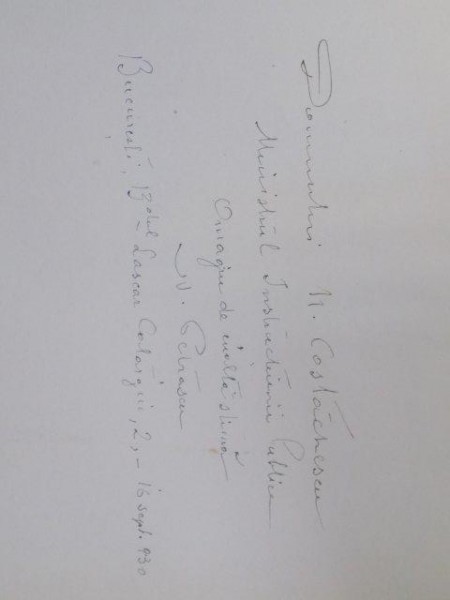 Domnului N. Costăchescu
Ministrul Instrucțiunii Publice
Omagiu de înaltă stimă
N. Petrașcu
București, B-dul Lascar Catargiu, 2, – 16 sept. 930